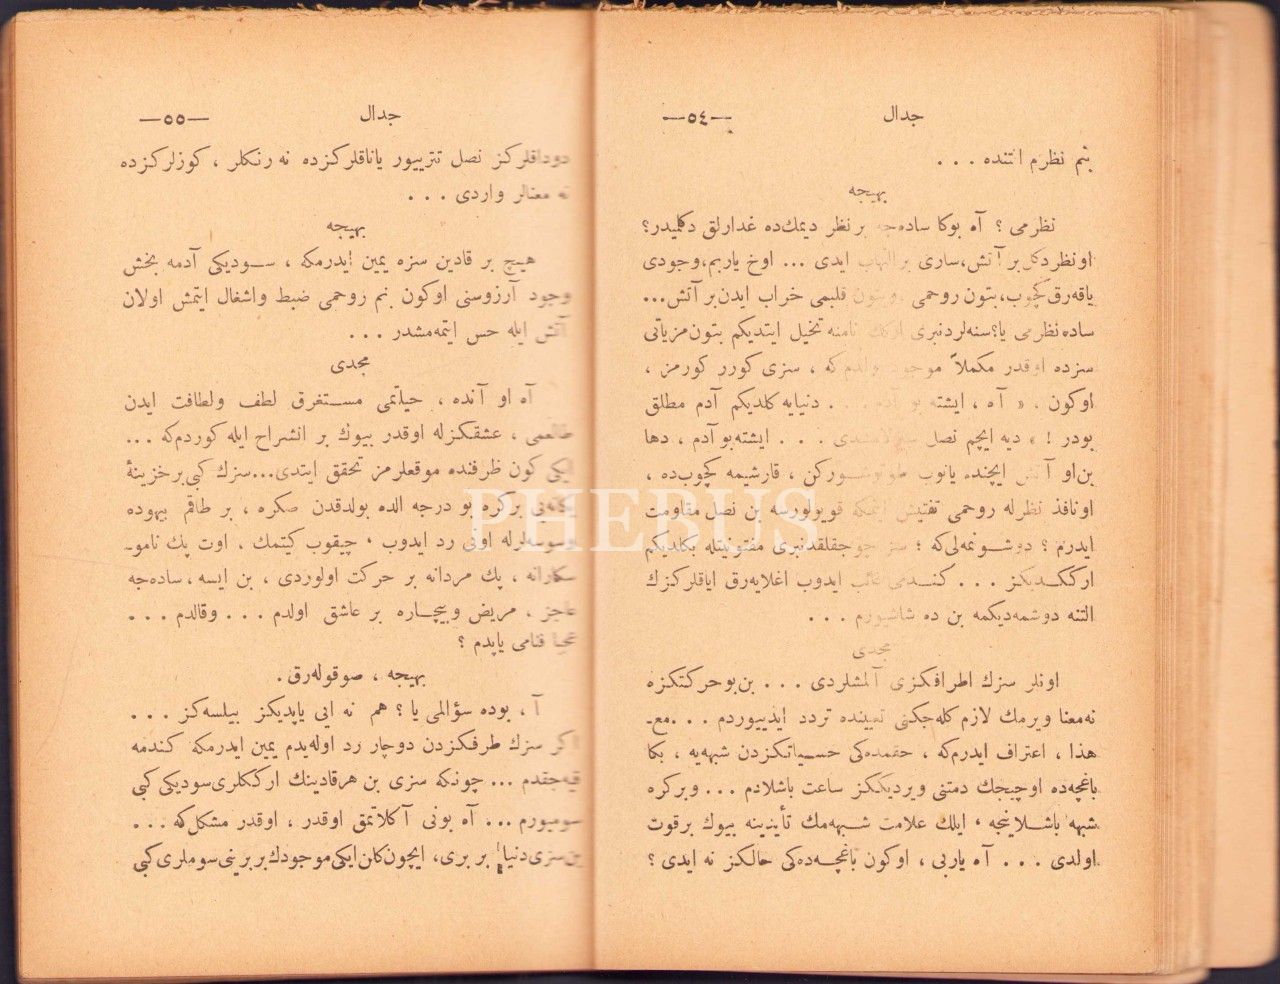 جدال —٥٤—
بنم نظرم انتنده . . .
بهیجه
نظرمی ؟ آه بوکا ساده‌جه برنظر دیمك‌ده غدارلق دکلمیدر؟
اونظردکل بر آتش، ساری بر التهاب ایدی ... اوخ یاربم، وجودی
یاقه‌رق کچوب، بتون روحمی وبتون قلبمی خراب ایدن بر آتش...
ساده نظرمی یا؟ سنه‌لردنبری ارکك نامنه تخیل ایتدیکم بتون مزیاتی
سزده اوقدر مکملاً موجود بولدم که ، سزی کورر کورمز ،
اوکون ، « آه ، ایشته بو آدم . . . دنیایه کلدیکم آدم مطلق
بودر ! » دیه ایچم نصل . . . ایشته بو آدم ، دها
بن او آتش ایچنده یانوب طوتوشورکن ، قارشیمه کچوب‌ده ،
اونافذ نظرله روحمی تفتیش ایتمکه قویولورسه بن نصل مقاومت
ایدرم ؟ دوشونمه‌لی که ؛ سز چوجقلقدنبری مفتونیتله بکلدیکم
ارککدیکز . . . کندمی غائب ایدوب اغلایه‌رق ایاقلرکزك
التنه دوشمه‌دیکمه بن ده شاشیورم . . .
مجدی
اونلر سزك اطرافکزی آلمشلردی . . . بن بو حرکتکزه
نه معنا ویرمك لازم کله‌جکنی تعیینده تردد ایدییوردم . . . مع-
هذا ، اعتراف ایدرم که ، حقمده‌کی حسیاتکزدن شبهه‌یه ، بکا
باغچه‌ده اوچیچك دمتنی ویردیککز ساعت باشلادم . . . وبرکره
شبهه باشلاینجه ، ایلك علامت شبهه‌مك تأییدینه بیوك برقوت
اولدی . . . آه یاربی ، اوکون باغچه‌ده‌کی حالکز نه ایدی ؟
جدال —٥٥—
دوداقلرکز نصل تتریبور یاناقلرکزده نه رنکلر ، کوزلرکزده
نه معنالر واردی . . .
بهیجه
هیچ بر قادین سزه یمین ایدرمکه ، سودیکی آدمه بخش
وجود آرزوسنی اوکون بنم روحمی ضبط واشغال ایتمش اولان
آتش ایله حس ایتمه‌مشدر . . .
مجدی
آه او آنده ، حیاتمی مستغرق لطف ولطافت ایدن
طالعمی ، عشقکزله اوقدر بیوك بر انشراح ایله کوردم که ...
ایکی کون ظرفنده موقعلرمز تحقق ایتدی... سزك کبی بر خزینهٔ
برکره بو درجه الده بولدقدن صکره ، بر طاقم بیهوده
وسوسه‌لرله اونی رد ایدوب ، چیقوب کیتمك . اوت پك نامو-
سکارانه ، پك مردانه بر حرکت اولوردی ، بن ایسه ، ساده‌جه
عاجز . مریض وبیچاره بر عاشق اولدم . . . وقالدم . . .
عجبا فنامی یاپدم ؟
بهیجه ، صوقوله‌رق .
آ ، بوده سؤالمی یا ؟ هم نه ایی یاپدیکز بیلسه‌کز . . .
اکر سزك طرفکزدن دوچار رد اوله‌یدم یمین ایدرمکه کندمه
قیه‌جقدم ... چونکه سزی بن هر قادینك ارککلری سودیکی کبی
سومیورم ... آه بونی آکلاتمق اوقدر ، اوقدر مشکل که ...
بن سزی دنیا بر بری، ایچون کلن ایکی موجودك بربرینی سوملری کبی